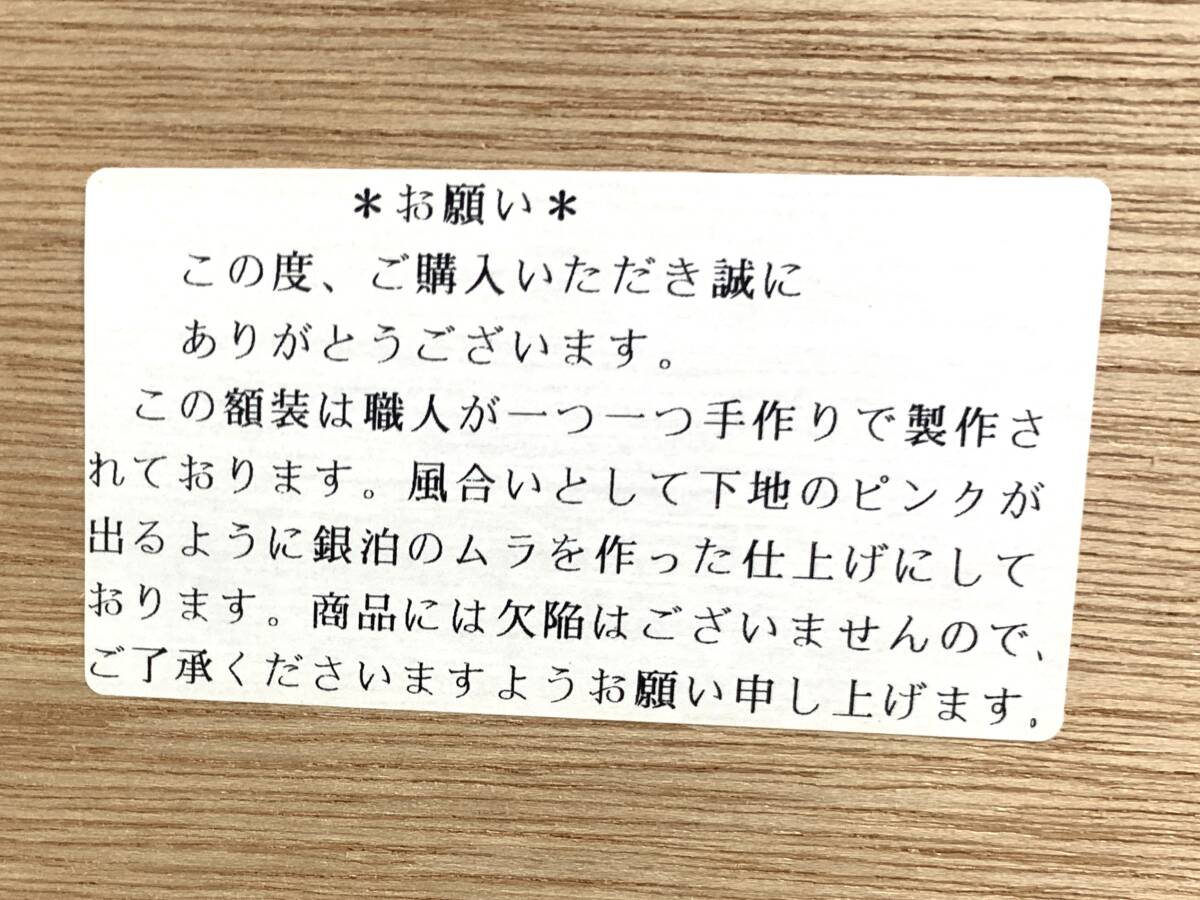 ＊お願い＊
この度、ご購入いただき誠に
ありがとうございます。
この額装は職人が一つ一つ手作りで製作さ
れております。風合いとして下地のピンクが
出るように銀泊のムラを作った仕上げにして
おります。商品には欠陥はございませんので、
ご了承くださいますようお願い申し上げます。